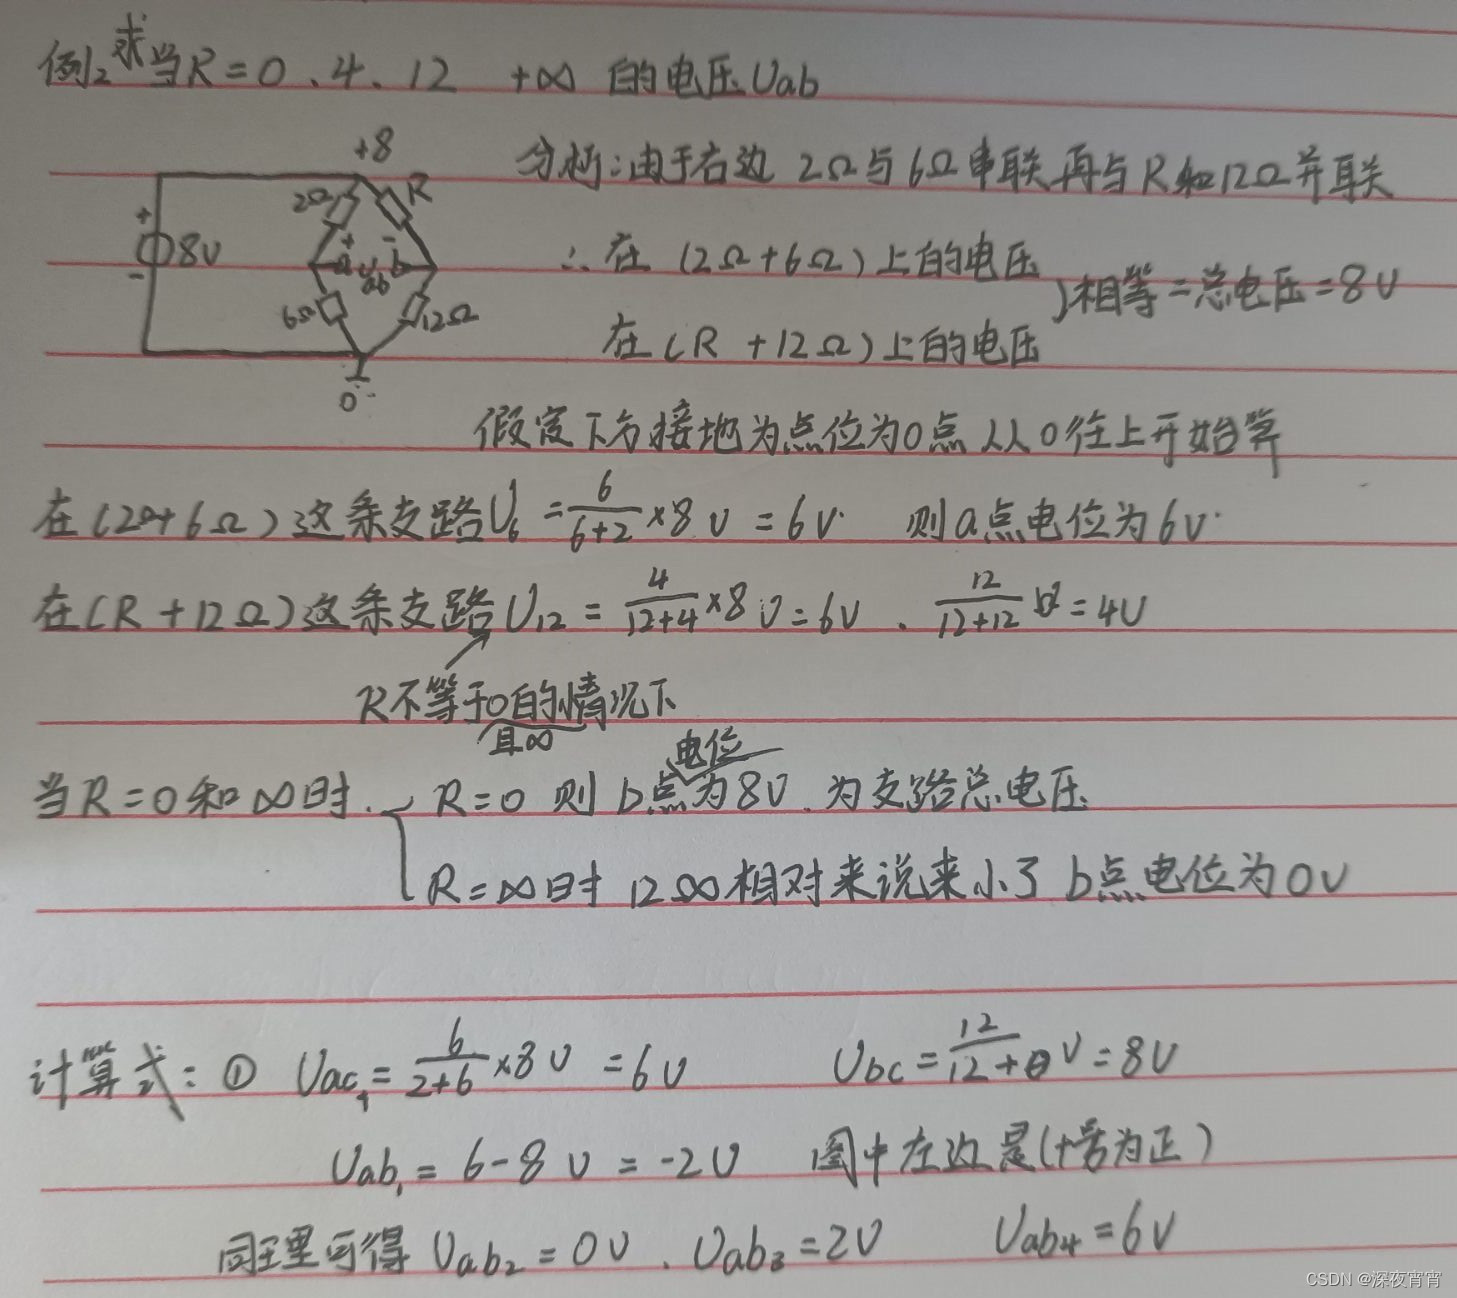 例2 求当R=0、4、12 +∞ 的电压Uab
分析:由于右边 2Ω与6Ω串联再与R和12Ω并联
+8
2Ω R
+ 8V
+ -
a Uab b
-
6Ω 12Ω
0
∴在(2Ω+6Ω)上的电压
在(R +12Ω)上的电压
}相等=总电压=8V
假定下方接地为点位为0点 从0往上开始算
在(2Ω+6Ω)这条支路U6=6/(6+2)×8V=6V 则a点电位为6V
在(R+12Ω)这条支路U12=4/(12+4)×8V=6V、12/(12+12) =4V
R不等于0的情况下
且∞
当R=0和∞时. { R=0 则b点电位为8V.为支路总电压
R=∞时 12Ω相对来说来小了 b点电位为0V
计算式:① Uac1=6/(2+6)×8V=6V Ubc=12/(12+0)V=8V
Uab1=6-8V=-2V 图中左边是(+号为正)
同理可得 Uab2=0V、Uab3=2V Uab4=6V
CSDN @深夜宵宵